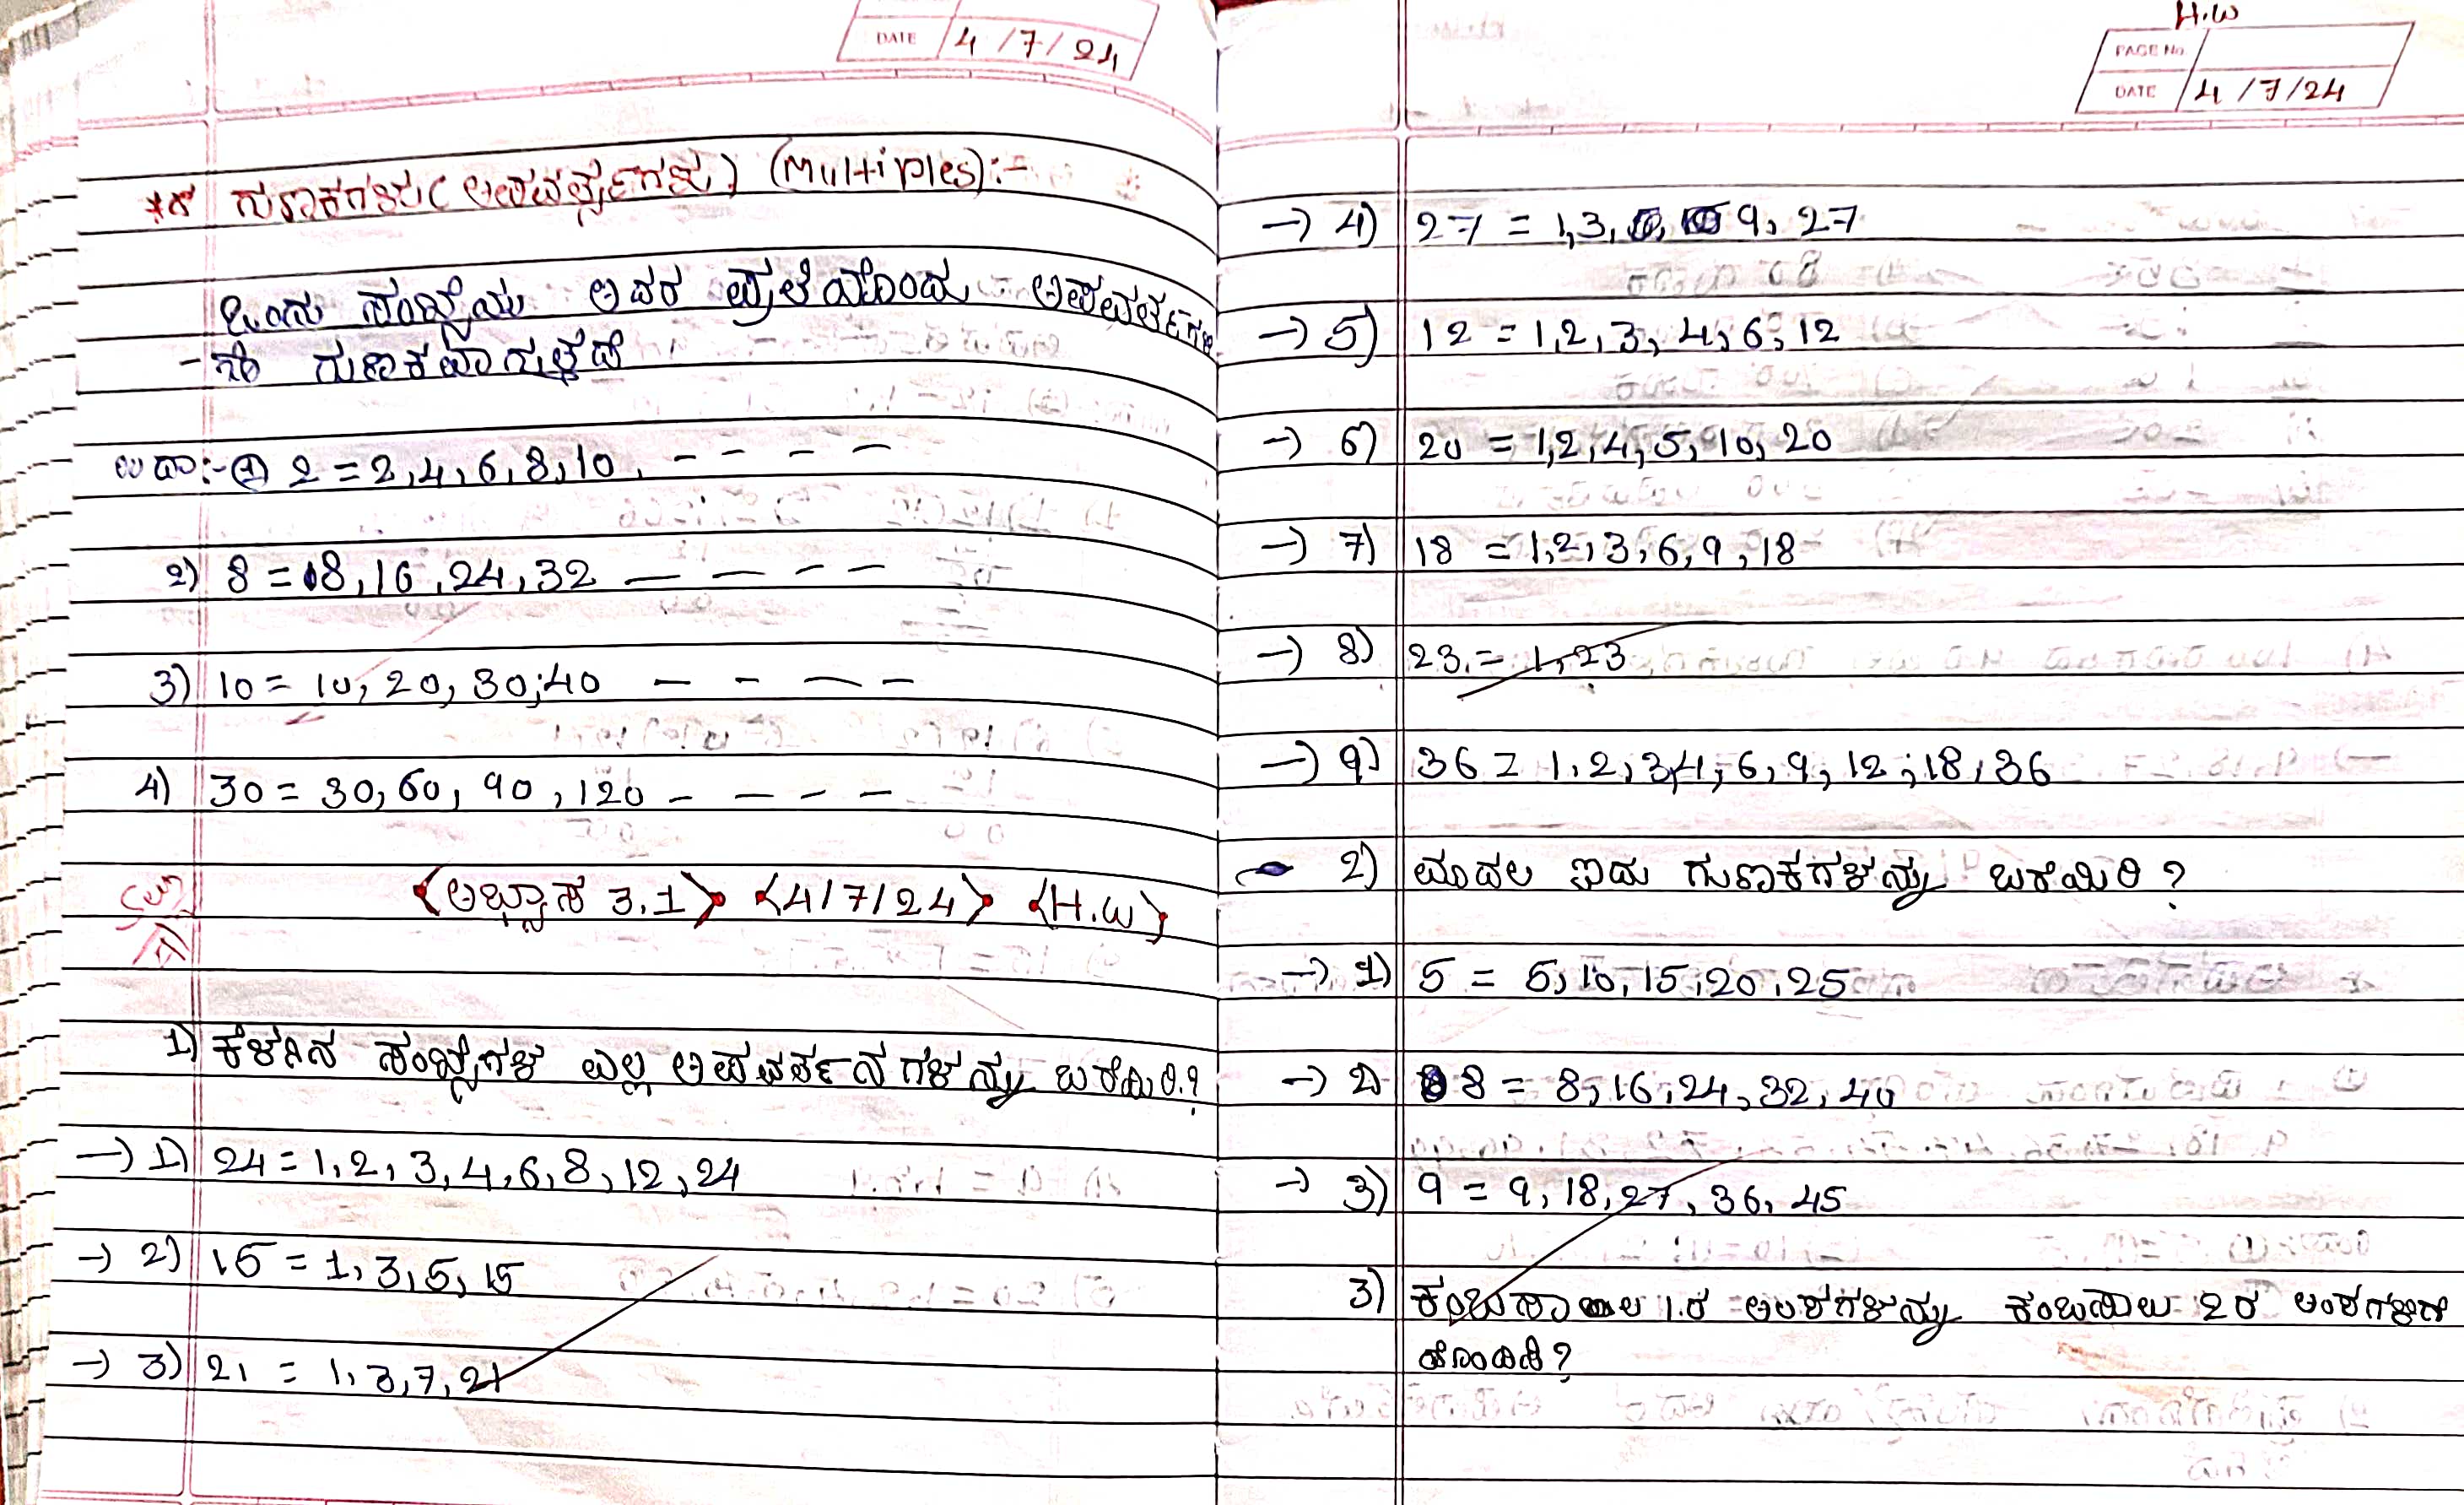 DATE 4/7/24
** ಗುಣಾಕಗಳು ( ಅಪವರ್ತ್ಯಗಳು ) (Multiples):-
ಒಂದು ಸಂಖ್ಯೆಯು ಅದರ ಪ್ರತಿಯೊಂದು ಅಪವರ್ತಗಳ
-ನೇ ಗುಣಾಕವಾಗುತ್ತದೆ
ಉದಾ:- 1) 2 = 2, 4, 6, 8, 10, - - - -
2) 8 = 8, 16, 24, 32 - - - -
3) 10 = 10, 20, 30, 40 - - - -
4) 30 = 30, 60, 90, 120 - - - -
<ಅಭ್ಯಾಸ 3.1> <4/7/24> <H.W>
1) ಕೆಳಗಿನ ಸಂಖ್ಯೆಗಳ ಎಲ್ಲ ಅಪವರ್ತನಗಳನ್ನು ಬರೆಯಿರಿ.?
→ 1) 24 = 1, 2, 3, 4, 6, 8, 12, 24
→ 2) 15 = 1, 3, 5, 15
→ 3) 21 = 1, 3, 7, 21
H.W
PAGE No.
DATE 4/7/24
→ 4) 27 = 1, 3, 9, 27
→ 5) 12 = 1, 2, 3, 4, 6, 12
→ 6) 20 = 1, 2, 4, 5, 10, 20
→ 7) 18 = 1, 2, 3, 6, 9, 18
→ 8) 23 = 1, 23
→ 9) 36 = 1, 2, 3, 4, 6, 9, 12, 18, 36
2) ಮೊದಲ ಐದು ಗುಣಾಕಗಳನ್ನು ಬರೆಯಿರಿ ?
→ 1) 5 = 5, 10, 15, 20, 25
→ 2) 8 = 8, 16, 24, 32, 40
→ 3) 9 = 9, 18, 27, 36, 45
3) ಕಂಬಸಾಲ 1.ರ ಅಂಶಗಳನ್ನು ಕಂಬಸಾಲು 2ರ ಅಂಶಗಳಿಗೆ
ಹೊಂದಿಸಿ?